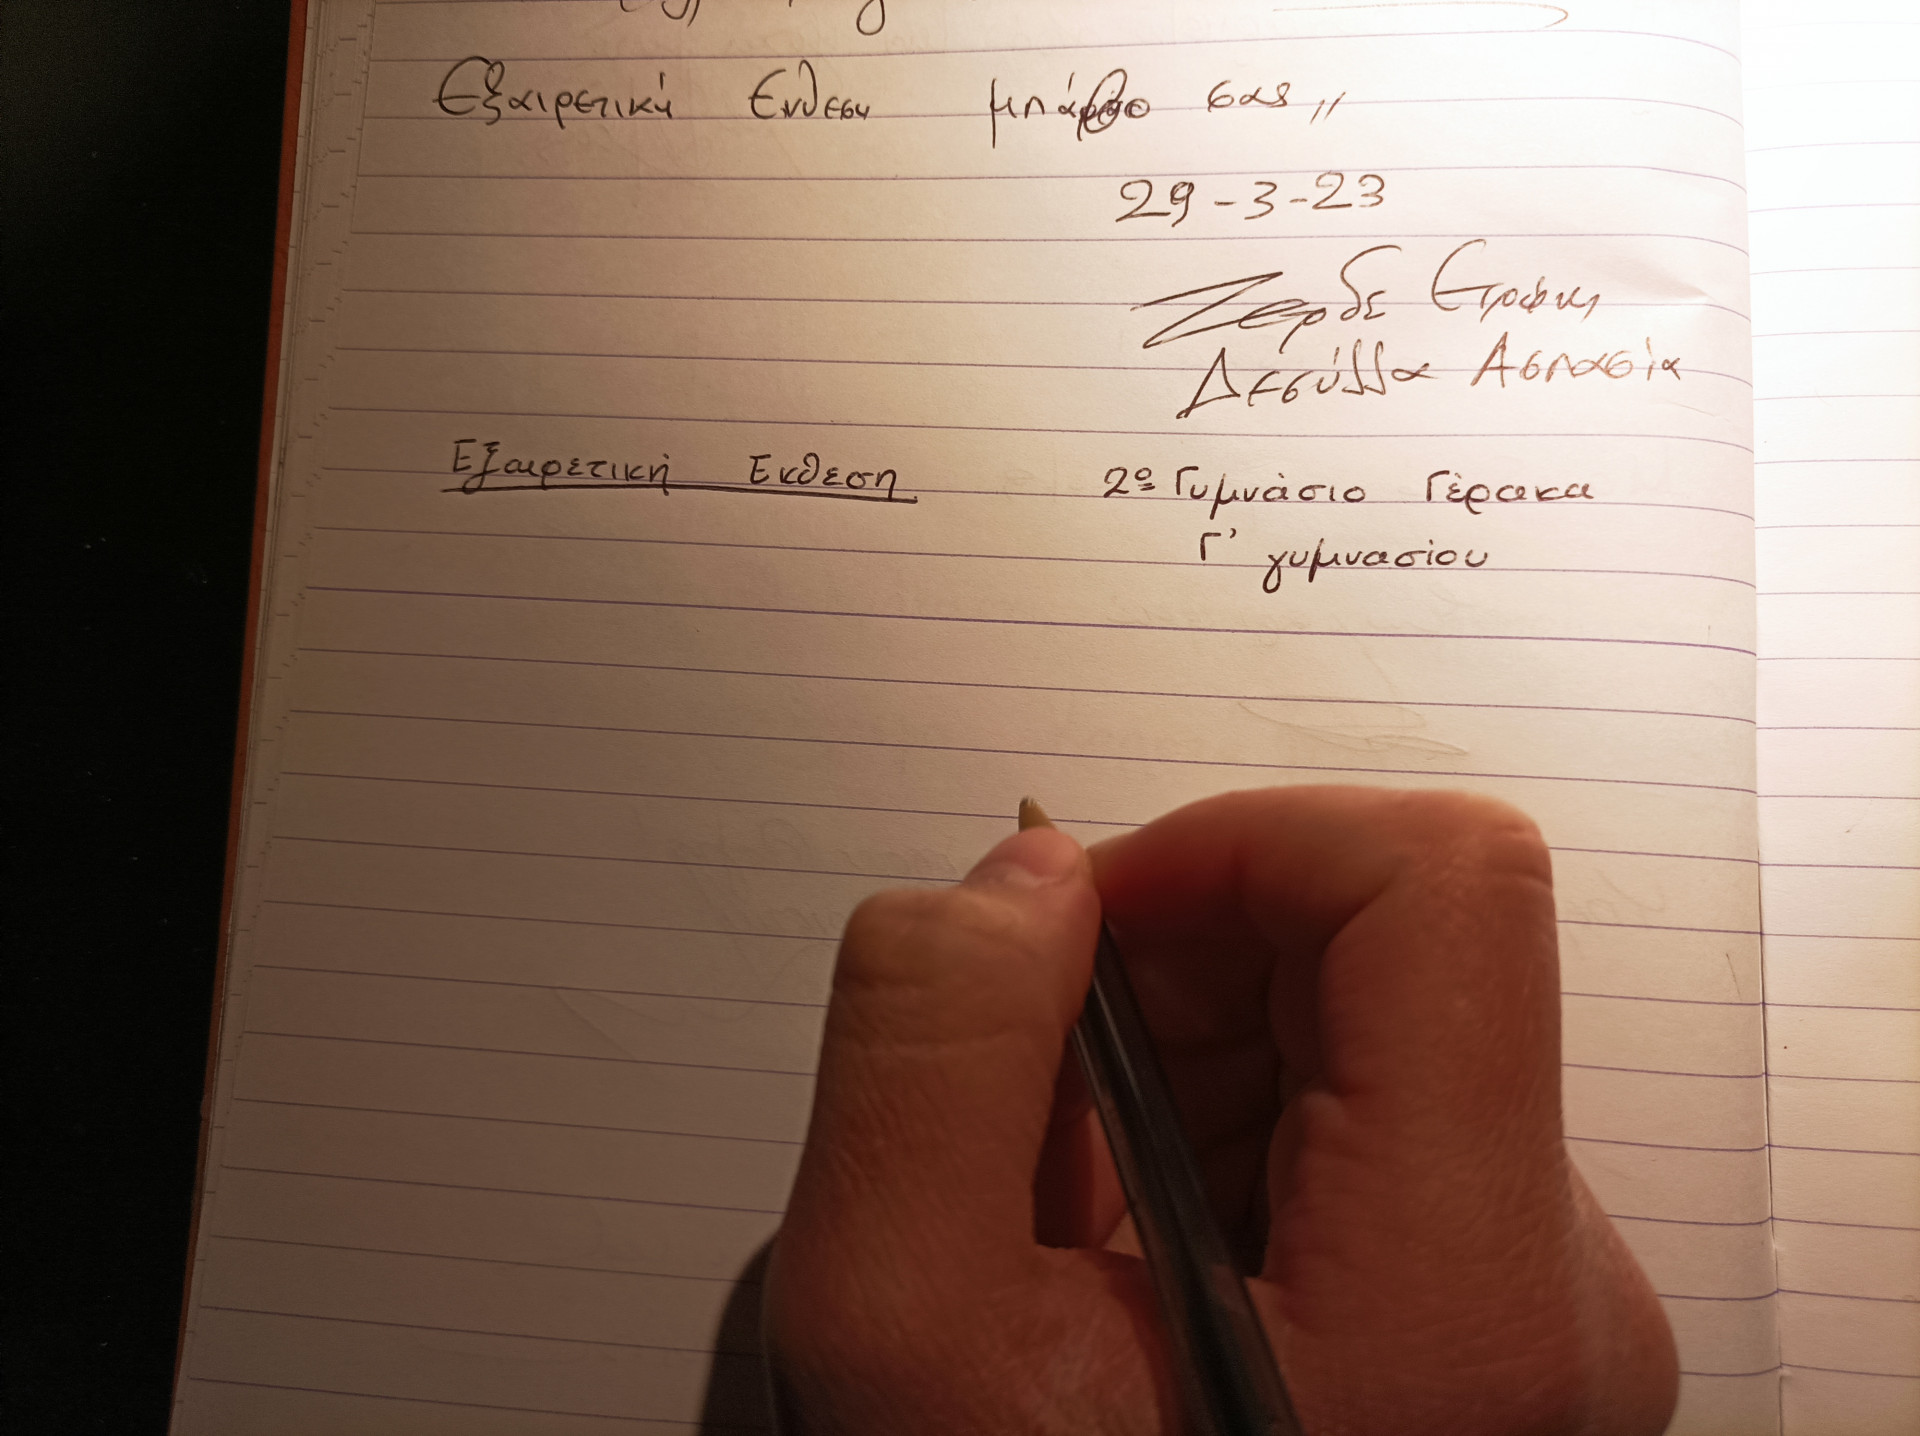 Εξαιρετική Εκθεση μπράβο σας,,
29-3-23
Ζερδε
Δεσύλλα Ασπασία
Εξαιρετική Εκθεση
2º Γυμνάσιο Γέρακα
Γ' γυμνασίου